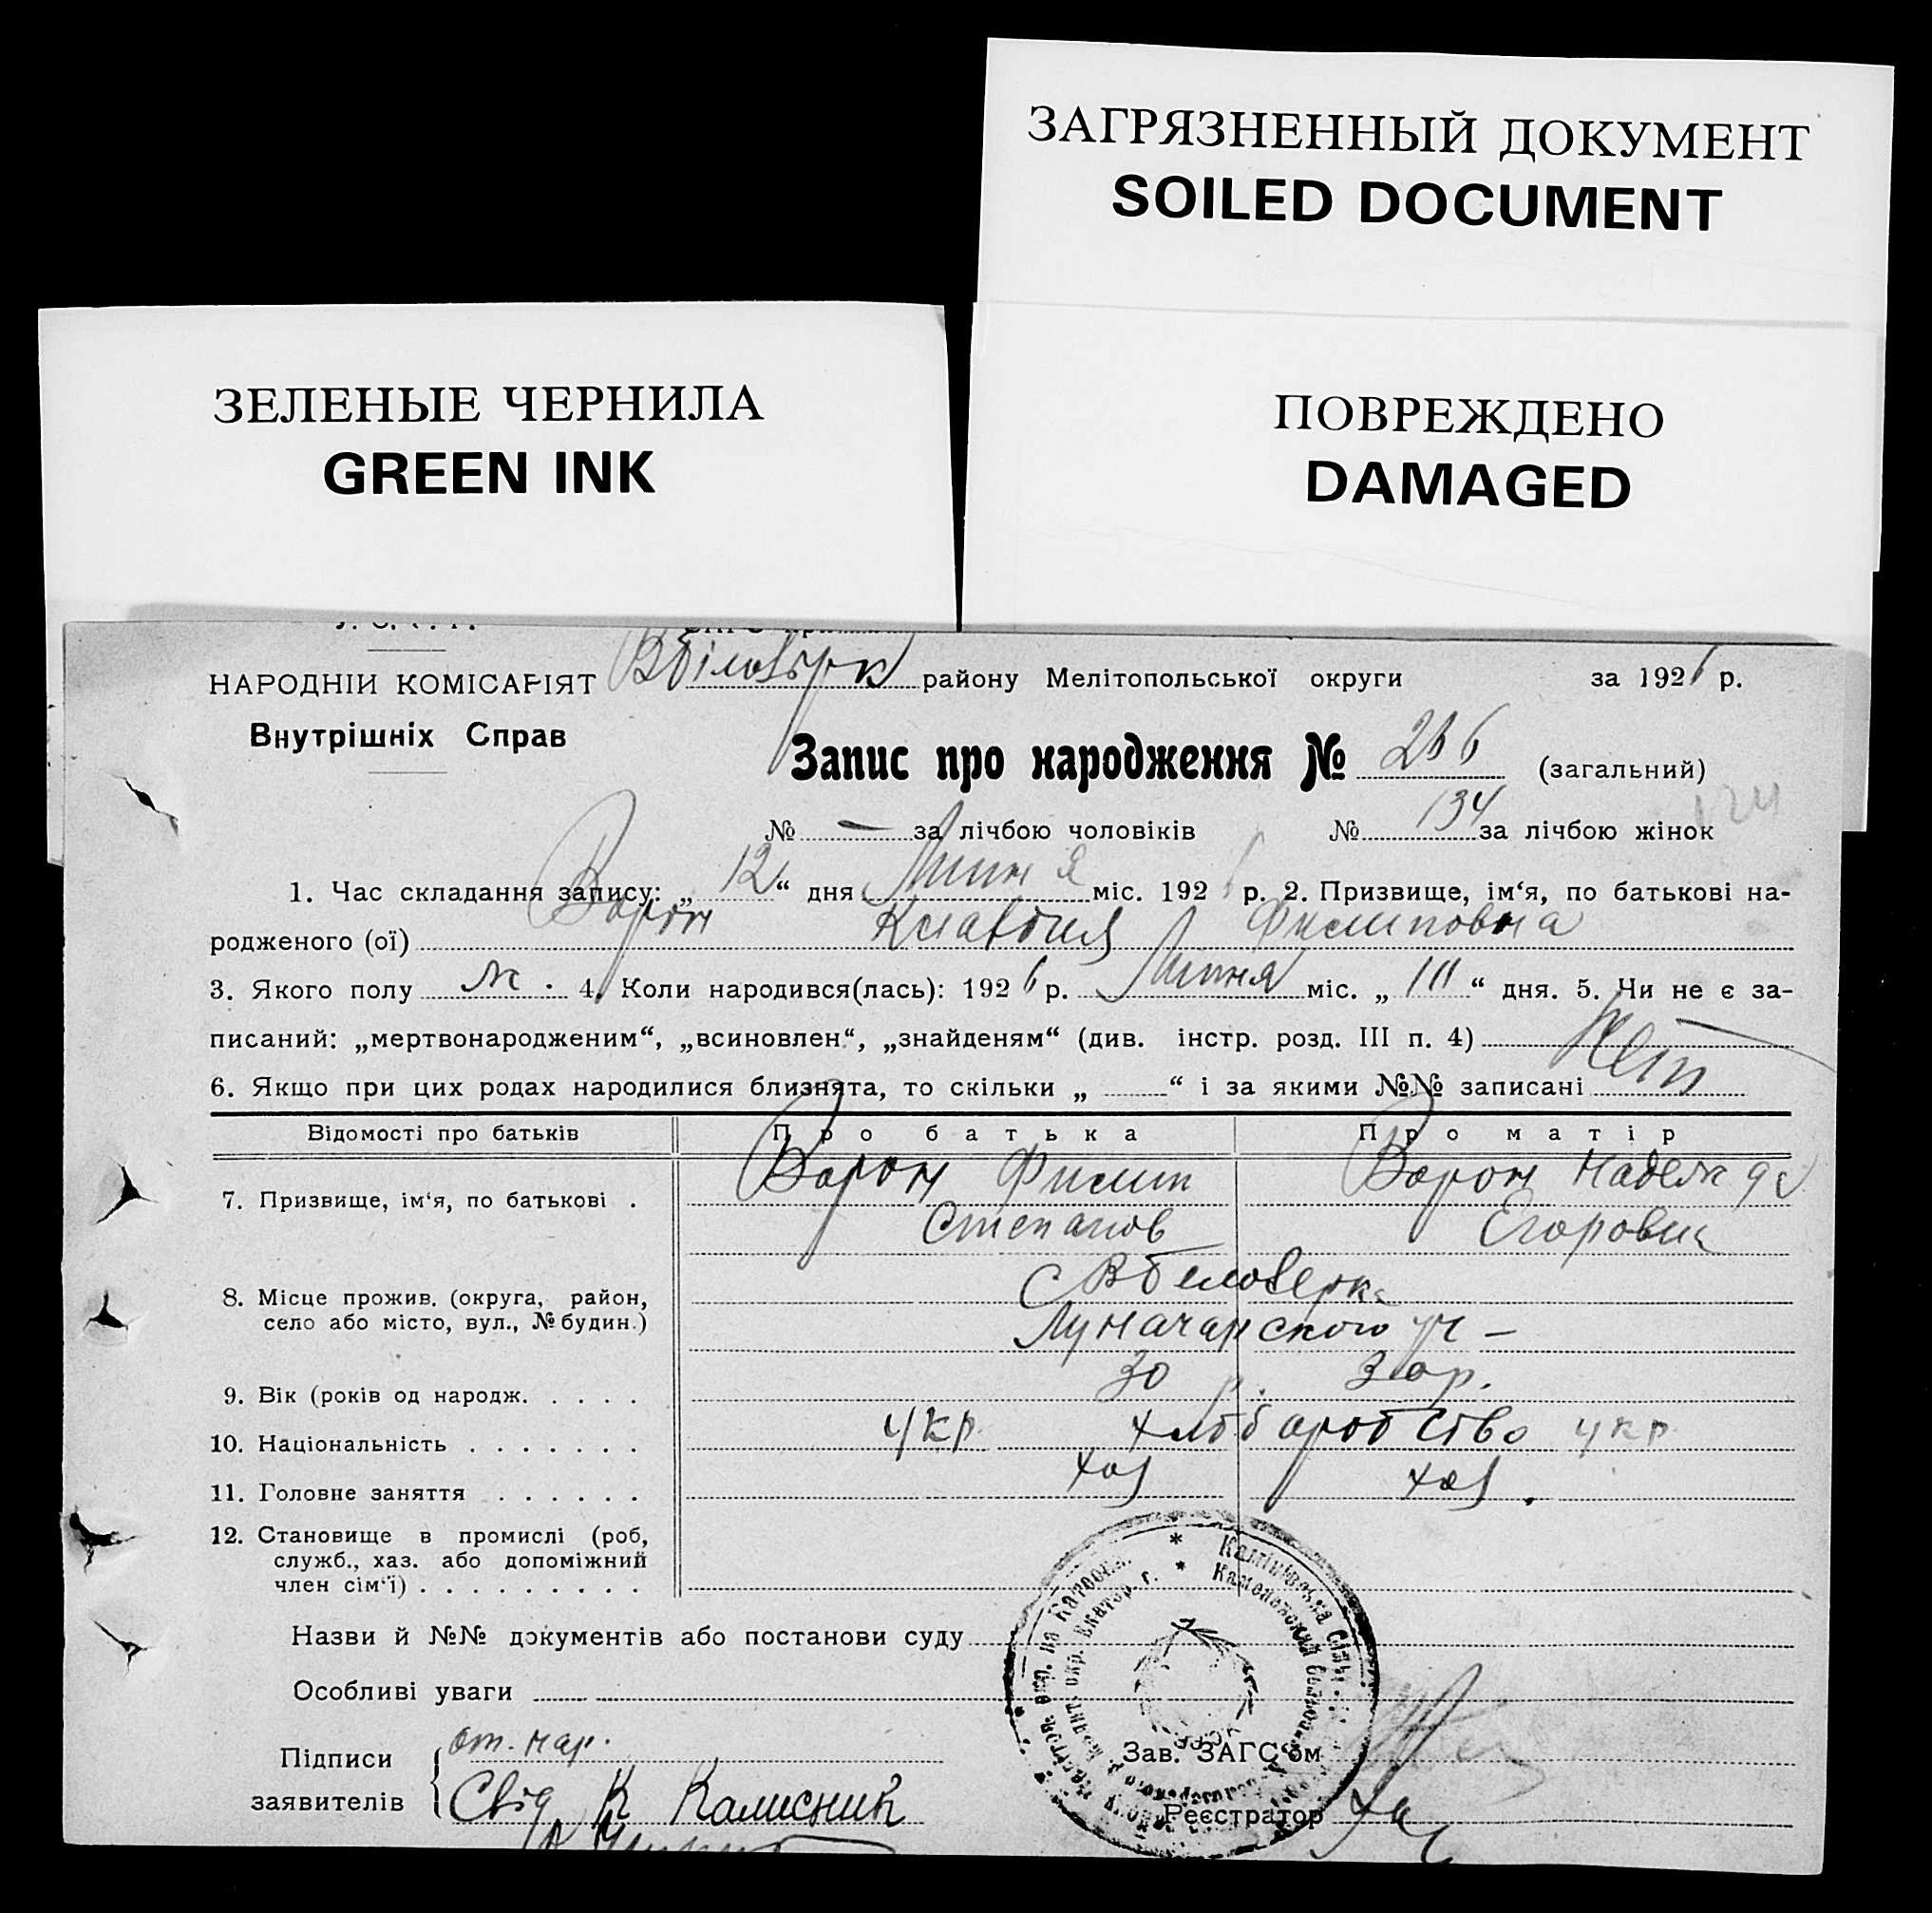 ЗАГРЯЗНЕННЫЙ ДОКУМЕНТ
SOILED DOCUMENT
ЗЕЛЕНЫЕ ЧЕРНИЛА
GREEN INK
ПОВРЕЖДЕНО
DAMAGED
НАРОДНІЙ КОМІСАРІЯТ
Внутрішніх Справ
району Мелітопольської округи за 1926 р.
Запис про народження № (загальний)
№ — за лічбою чоловіків № 134 за лічбою жінок
1. Час складання запису: „12“ дня міс. 1926 р. 2. Призвище, ім‘я, по батькові на-
родженого (ої) Ворон Клавдия Филиповна
3. Якого полу ж. 4. Коли народився(лась): 1926 р. міс. „ “ дня. 5. Чи не є за-
писаний: „мертвонародженим“, „всиновлен“, „знайденям“ (див. інстр. розд. III п. 4) Нет
6. Якщо при цих родах народилися близнята, то скільки „ “ і за якими №№ записані
Відомості про батьків Про батька Про матір
7. Призвище, ім‘я, по батькові . Ворон Филип Ворон Надежда
Степанов Егоровна
8. Місце прожив. (округа, район, С В Белозерка
село або місто, вул., № будин.) Луначарского ул —
9. Вік (років од народж. . . . . 30 р. 30 р.
10. Національність . . . . . . . укр. хлібаробство укр
11. Головне заняття . . . . . . хаз хаз.
12. Становище в промислі (роб,
служб., хаз. або допоміжний
член сім‘ї) . . . . . . . . .
Назви й №№ документів або постанови суду
Особливі уваги
Підписи
заявителів Свід К Калисник
Зав. ЗАГС‘ом
Реєстратор